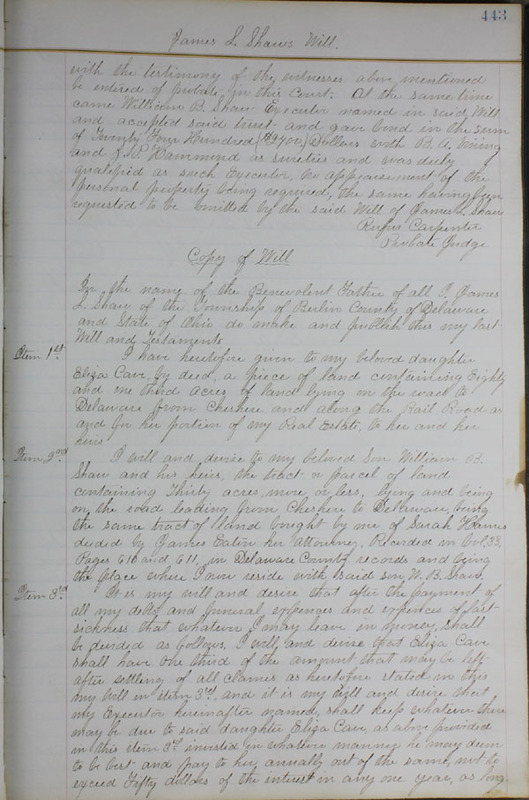 443
James L. Shaws Will.
with the testimony of the witnesses above mentioned
be entered of probate in this Court. At the same time
came William B. Shaw Executor named in said Will
and accepted said trust and gave bond in the sum
of Twenty Four Hundred ($2400.) Dollars with B. A.
and J. P. Hammond as sureties and was duly
qualified as such Executor, no appraisement of the
personal property being required, the same having been
requested to be omitted by the said Will of James L. Shaw
Rufus Carpenter
Probate Judge
Copy of Will
In the name of the Benevolent Father of all I, James
L. Shaw of the Township of Berlin County of Delaware
and State of Ohio do make and publish this my last
Will and Testaments
Item 1st. I have heretofore given to my beloved daughter
Eliza Cave, by deed, a piece of land containing Eighty
and one third acres of land lying on the road to
Delaware from Cheshire and along the Rail Road as
and for her portion of my Real Estate, to her and her
heirs
Item 2nd I will and devise to my beloved Son William B.
Shaw and his heirs, the tract or parcel of land
containing Thirty acres, more or less, lying and being
on the road leading from Cheshire to Delaware, being
the same tract of land bought by me of Sarah
deeded by James Eaton her attorney. Recorded in Vol. 33.
Pages 610 and 611, in Delaware County records and being
the place where I now reside with said son W. B. Shaw.
Item 3rd It is my will and desire that after the payment of
all my debts and funeral expences and expences of last
sickness that whatever I may leave in money shall
be devided as follows, I will and devise that Eliza Cave
shall have one third of the amount that may be left
after settleing of all Claimes as heretofore stated in this
my Will in item 3rd and it is my Will and desire that
my Executor hereinafter named, shall keep whatever there
may be due to said daughter Eliza Cave, as above provided
in this item 3rd invested in whatever manner he may deem
to be best and pay to her annually out of the same, not to
exceed Fifty dollars of the interest in any one year, as long